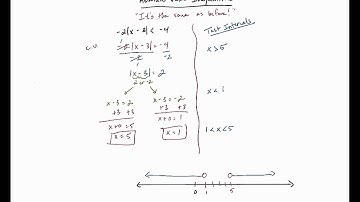 "It's the same as before!"
-2|x-3| < -4
c.v. -2|x-3| = -4
-2 -2
|x-3| = 2
2 or -2
x-3=2 x-3=-2
+3 +3 +3 +3
x+0=5 x+0=1
x=5 x=1
Test Intervals
x>5
x<1
1<x<5
0 1 5